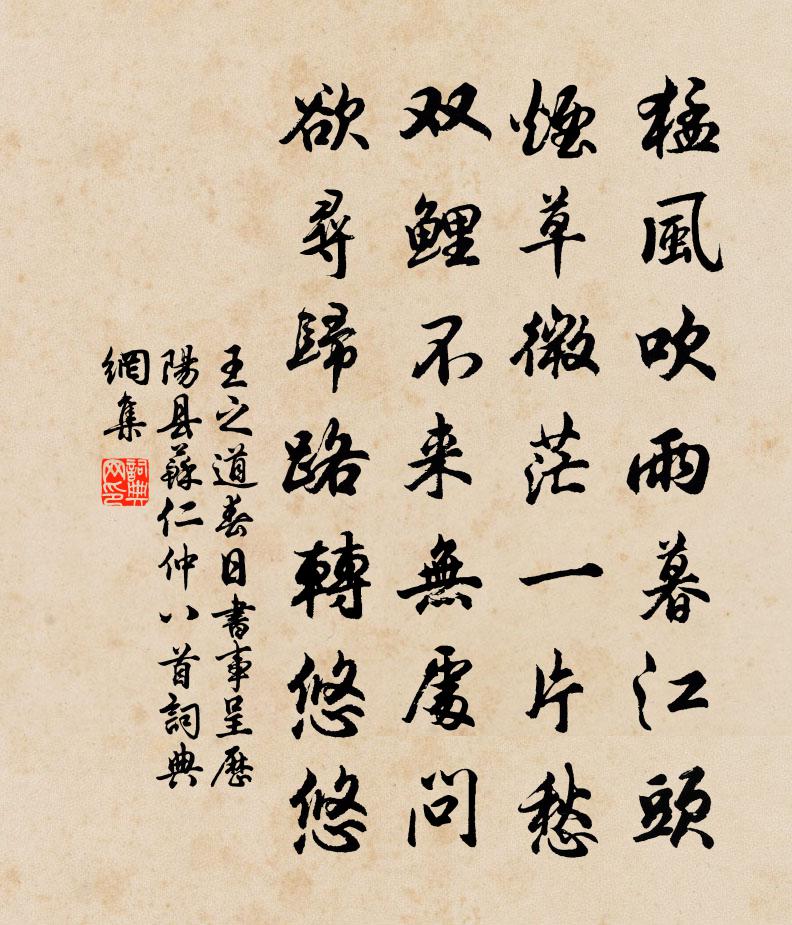 猛風吹雨暮江頭
煙草微茫一片愁
双鯉不来無處問
欲尋歸路轉悠悠
王之道春日書事呈歷
陽县蘇仁仲八首詞典
網集
詞典
网印